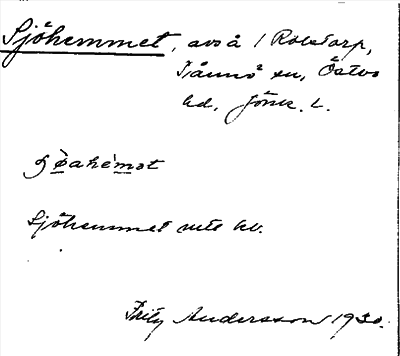 Sjöhemmet, avs å / Rolstorp,
Tånnö sn, Östbo
hd, Jönk. L.
Sjöhemmet utt hv.
Fritz Andersson 1930.